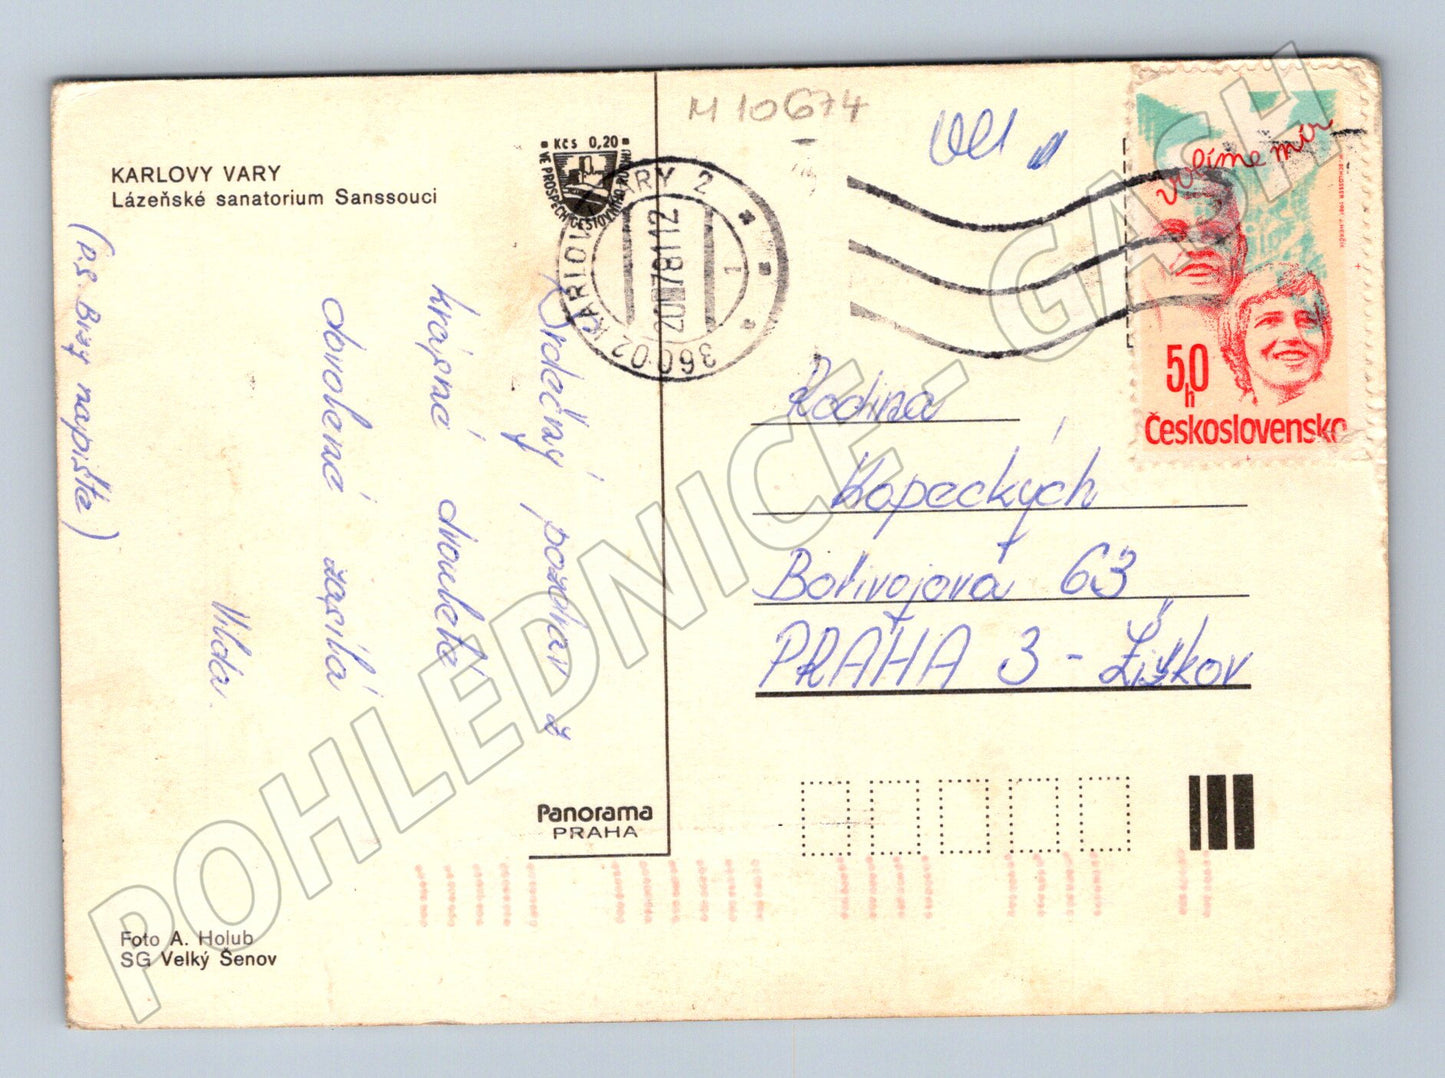 M 10674
KARLOVY VARY
Lázeňské sanatorium Sanssouci
Kčs 0,20
VE PROSPĚCH CESTOVNÍHO RUCHU
360 02 KARLOVY VARY 2
20.7.81-12
1
volíme mír
50
h
Československo
Srdečný pozdrav z
krásné dvouleté
dovolené zasílá
Vilda.
(P.S. Brzy napište)
Rodina
Kopeckých
Bořivojova 63
PRAHA 3 - Žižkov
Panorama
PRAHA
Foto A. Holub
SG Velký Šenov
POHLEDNICE - GASH